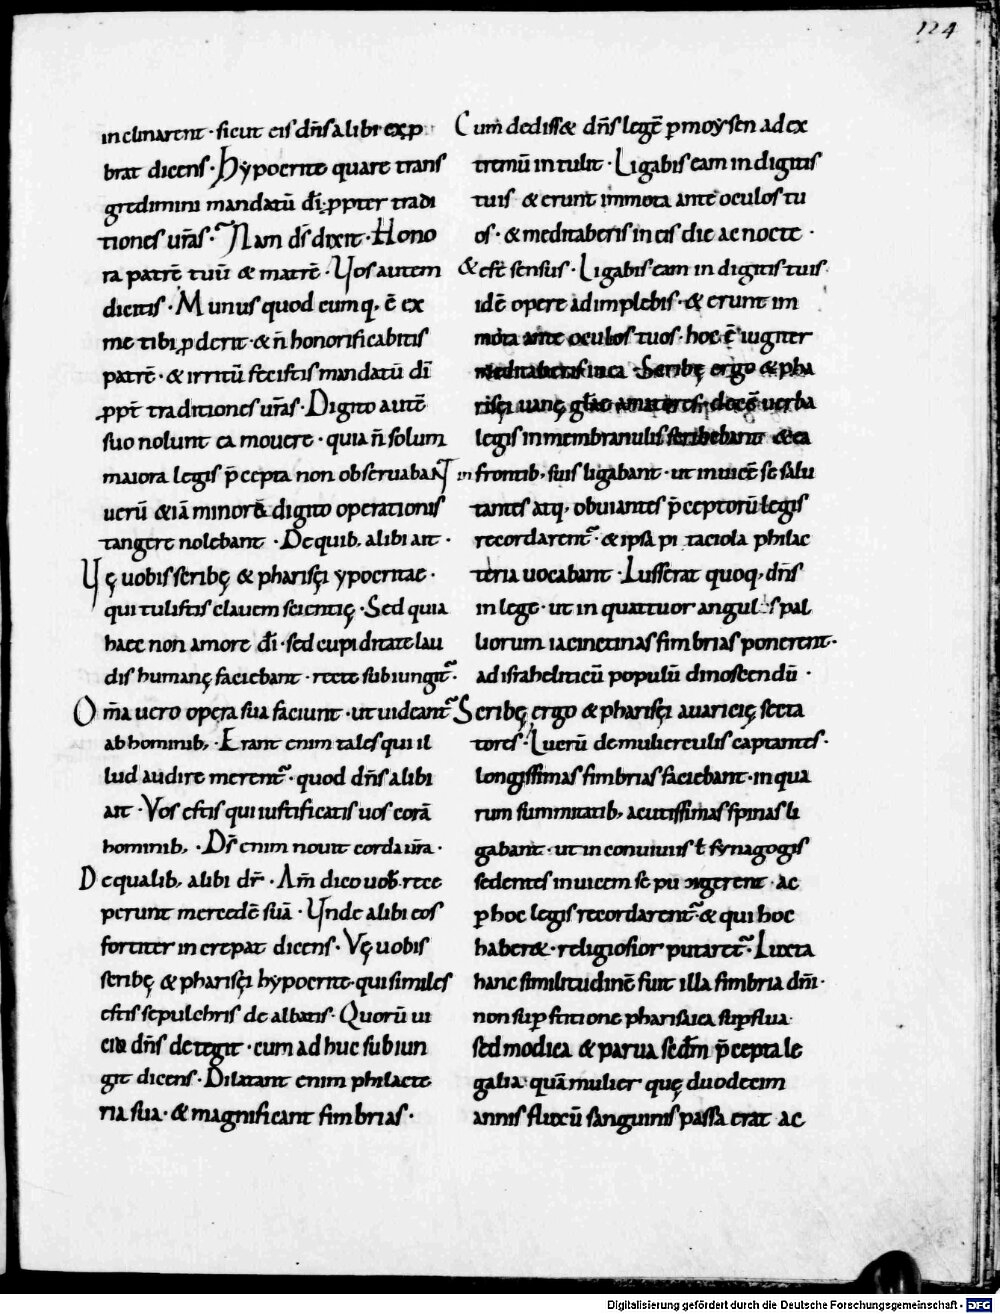 124
inclinarent · sicut eis dn̄s alibi exp
brat dicens · Hẏpocritę quare trans
gredimini mandatū dī · ꝓpter tradi
tiones ur̄as · Nam ds̄ dixit · Hono
ra patrē tuū & matrē · Vos autem
dicitis · Munus quod cumq, ē ex
me tibi ꝓderit · & n̄ honorificabitis
patrē · & irritū fecistis mandatū dī
ꝓpt̄ traditiones ur̄as · Digito autē
suo nolunt ea mouere · quia n̄ solum
maiora legis p̄cepta non obseruabant
uerū & iā minora digito operationis
tangere nolebant · De quib, alibi ait ·
Vę uobis scribę & pharisęi ypocritae ·
qui tulistis clauem scientię · Sed quia
haec non amore dī · sed cupiditate lau
dis humanę faciebant · recte subiungit᷑ ·
Om̄a uero opera sua faciunt · ut uideant᷑
ab hominib, · Erant enim tales qui il
lud audire merent᷑ · quod dn̄s alibi
ait · Vos estis qui iustificatis uos corā
hominib, · Ds̄ enim nouit corda ur̄a ·
De qualib, alibi dr̄ · Am̄ dico uob · rece
perunt mercedē suā · Vnde alibi eos
fortiter increpat dicens · Vę uobis
scribę & pharisęi hẏpocritę · qui similes
estis sepulchris dealbatis · Quorū ui
cia dn̄s detegit · cum adhuc subiun
git dicens · Dilatant enim philacte
ria sua · & magnificant fimbrias ·
Cum dediss& dn̄s legē p moẏsen ad ex
tremū intulit · Ligabis eam in digitis
tuis & erunt immota ante oculos tu
os · & meditaberis in eis die ac nocte ·
& est sensus · Ligabis eam in digitis tuis
idē opere adimplebis · & erunt im
mota ante oculos tuos · hoc ē iugiter
meditaberis in ea · Scribę ergo & pha
risęi uanę glae amatores · decē uerba
legis in membranulis scribebant & ea
in frontib, suis ligabant · ut inuicē se salu
tantes atq, obuiantes p̄ceptorū legis
recordarent᷑ · & ipsa pitaciola philac
teria uocabant · Iusserat quoq, dn̄s
in lege · ut in quattuor angulis pal
liorum iacinctinas fimbrias ponerent ·
ad israheliticū populū dinoscendū ·
Scribę ergo & pharisęi auaricię secta
tores · Lucrū de mulierculis captantes ·
longissimas fimbrias faciebant · in qua
rum summitatib, acutissimas spinas li
gabant · ut in conuiuiis ł synagogis
sedentes inuicem se pungerent · ac
p hoc legis recordarent᷑ · & qui hoc
haber& · religiosior putaret᷑ · Iuxta
hanc similitudinē fuit illa fimbria dn̄i ·
non supstitione pharisaica supflua
sed modica & parua sedm̄ p̄cepta le
galia · quā mulier quę duodecim
annis fluxū sanguinis passa erat ac
Digitalisierung gefördert durch die Deutsche Forschungsgemeinschaft - DFG